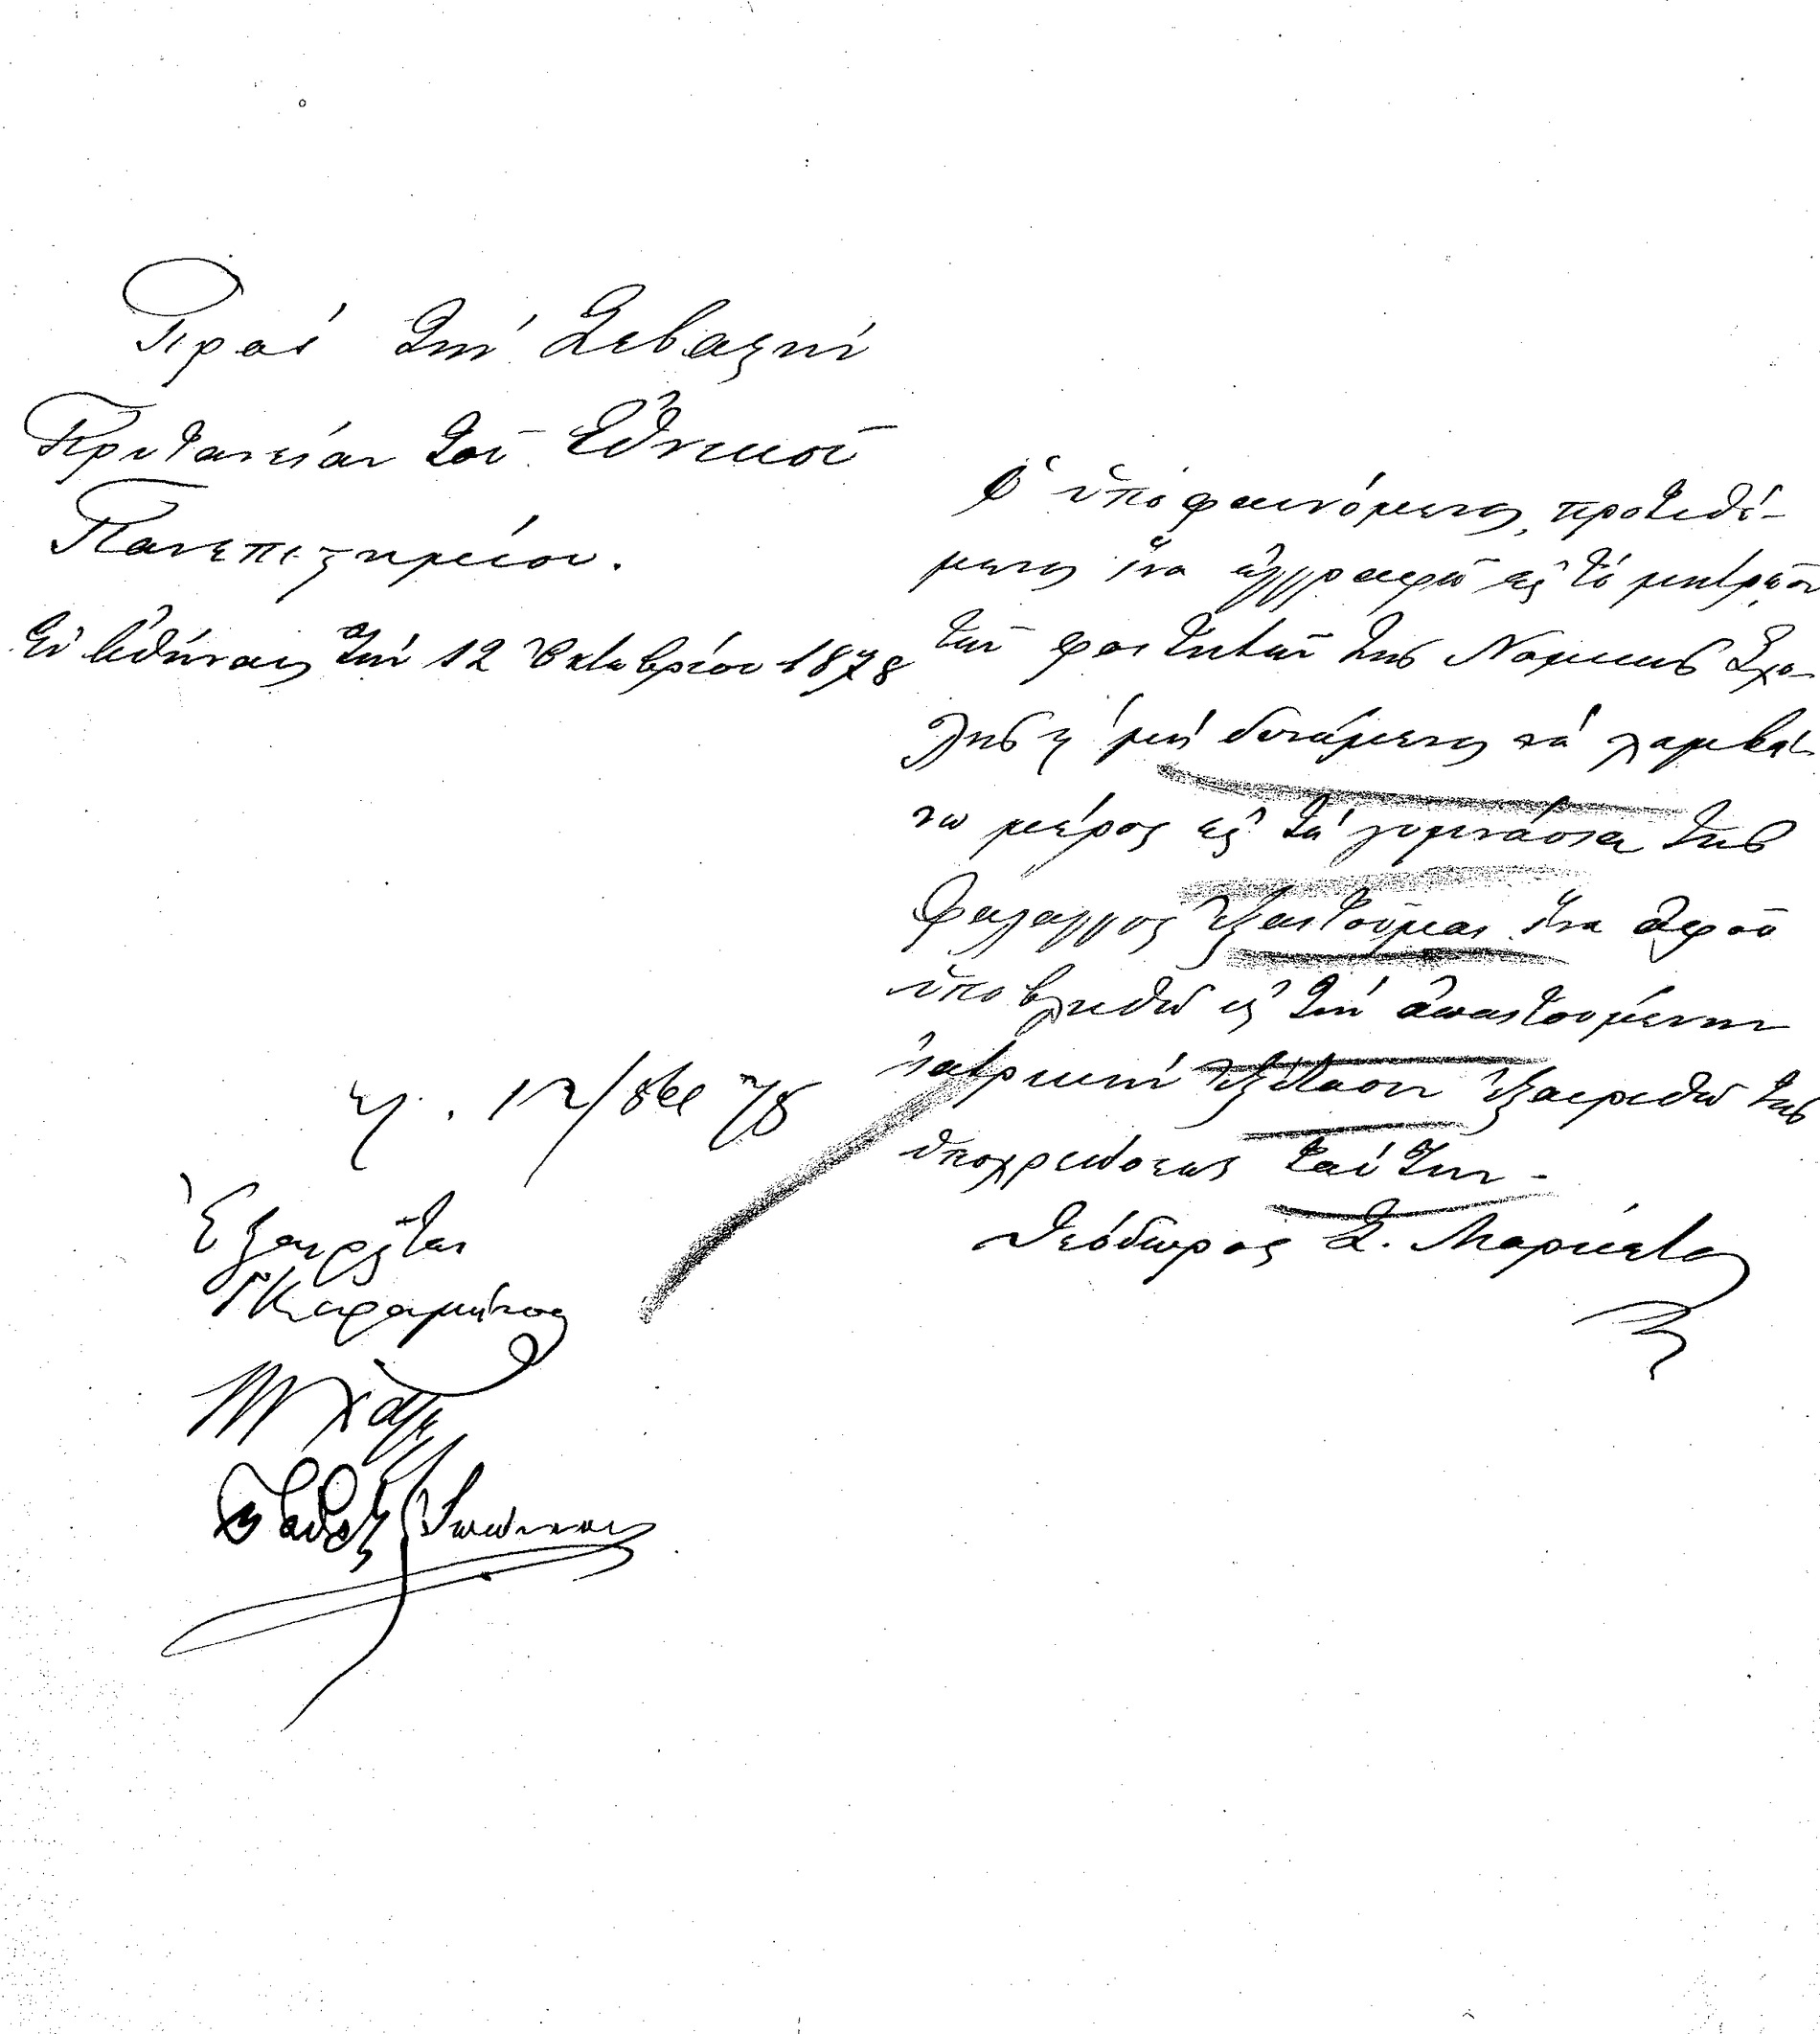 Πρὸς τὴν Σεβαστὴν
Πρυτανείαν τοῦ Ἐθνικοῦ
Πανεπιστημίου.
Ἐν Ἀθήναις τὴν 12 Ὀκτωβρίου 1878
Ὁ ὑποφαινόμενος, προτιθέ-
μενος ἵνα ἐγγραφῶ εἰς τὸ μητρῷον
τῶν φοιτητῶν τῆς Νομικῆς Σχο-
λῆς μὴ δυνάμενος νὰ λαμβά-
νω μέρος εἰς τὰ γυμνάσια τῆς
Φάλαγγος ἐξαιτοῦμαι ἵνα ἀφοῦ
ὑποβληθῶ εἰς τὴν ἀπαιτουμένην
ἰατρικὴν ἐξέτασιν ἐξαιρεθῶ τῆς
ὑποχρεώσεως ταύτης.
Θεόδωρος Σ.
12/ 78
Ἐξαιρεῖται